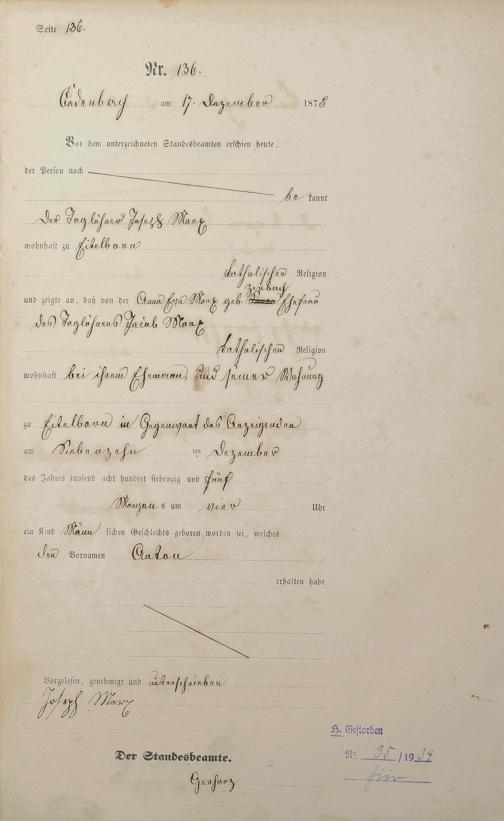 Seite 136.
Nr. 136.
Cadenbach am 17. Dezember 1875
Vor dem unterzeichneten Standesbeamten erschien heute,
der Person nach
be kannt
der Taglöhner Joseph Marx
wohnhaft zu Eitelborn
katholischer Religion
und zeigte an, daß von der Anna Eva Marx geb. Zerbach Ehefrau
des Taglöhners Jacob Marx
katholischer Religion
wohnhaft bei ihrem Ehemann, und seiner Wohnung
zu Eitelborn in Gegenwart des Anzeigenden
am Siebenzehn ten Dezember
des Jahres tausend acht hundert siebenzig und fünf
Morgens um vier Uhr
ein Kind Männ lichen Geschlechts geboren worden sei, welches
den Vornamen Anton
erhalten habe
Vorgelesen, genehmigt und unterschrieben
Joseph Marx
Der Standesbeamte.
Gerharz
H. Gestorben
Nr. 35/1934
hier